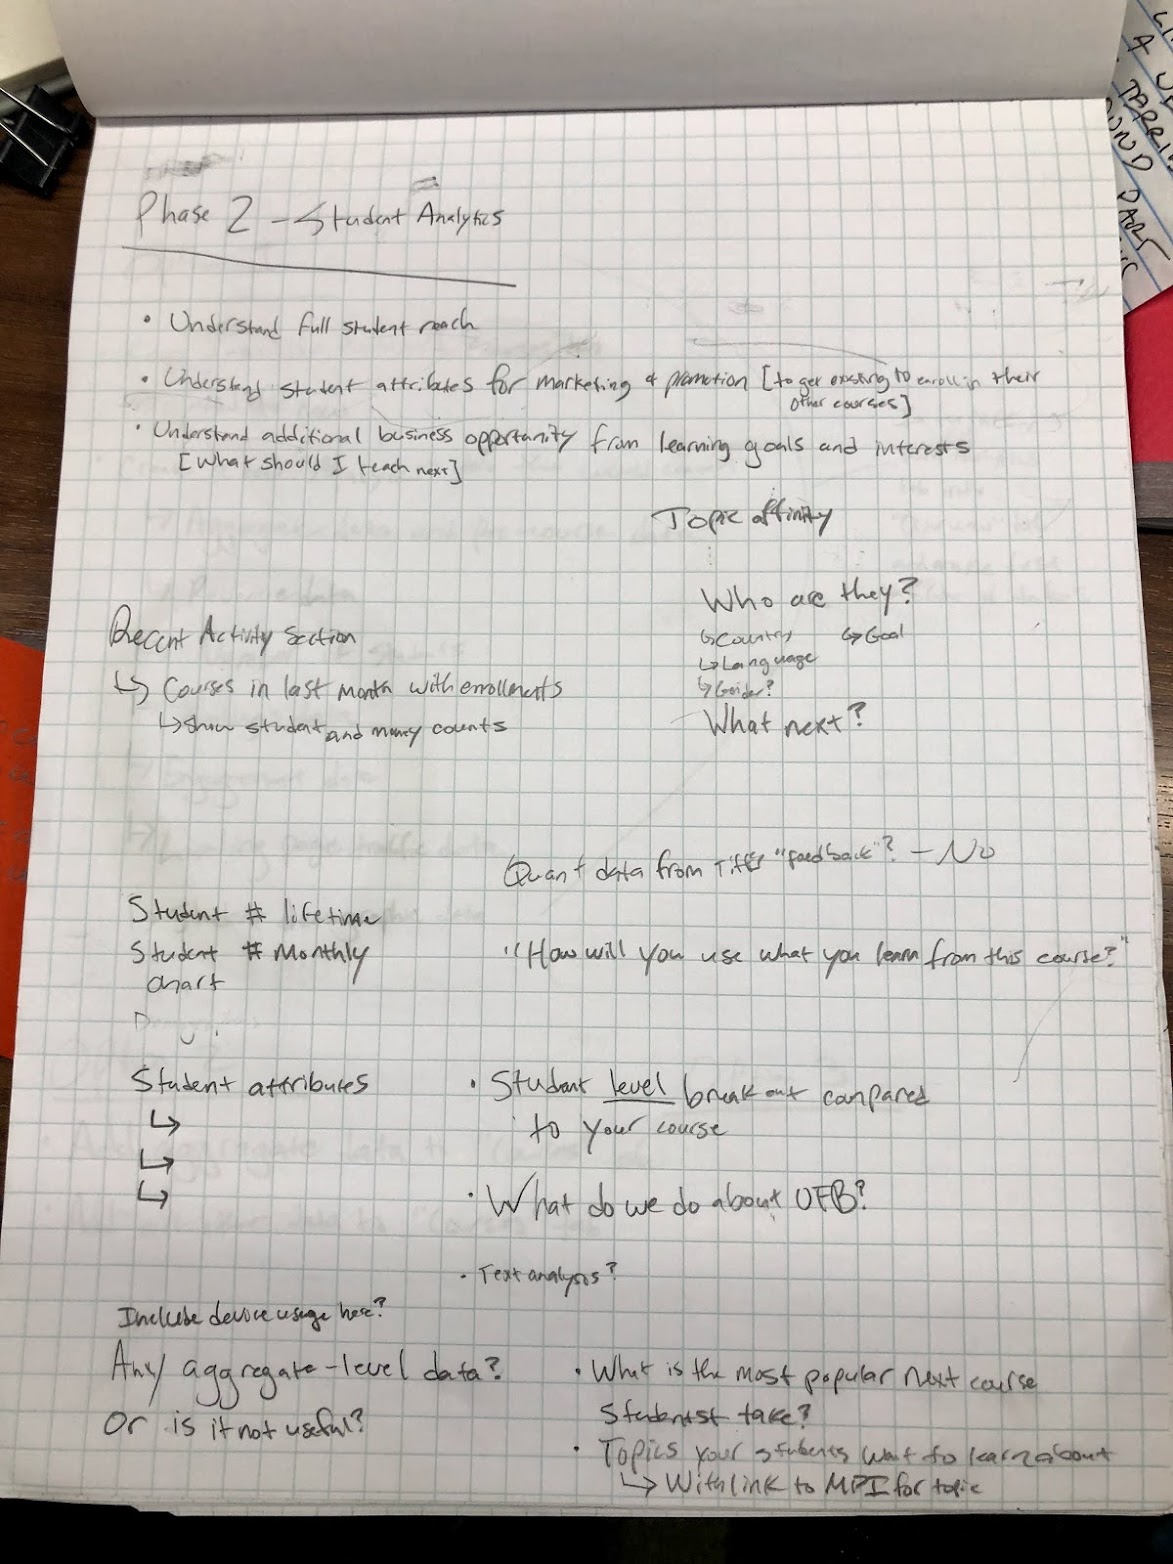 Phase 2 - Student Analytics
• Understand full student reach
• Understand student attributes for marketing & promotion [to get existing to enroll in their
other courses]
• Understand additional business opportunity from learning goals and interests
[What should I teach next]
Topic affinity
Who are they?
↳ Country ↳ Goal
↳ Language
↳ Gender?
What next?
Recent Activity Section
↳ Courses in last month with enrollments
↳ show student and money counts
Quant data from "feedback"? - No
Student # lifetime
Student # Monthly
chart
"How will you use what you learn from this course?"
Student attributes
↳
↳
↳
• Student level break out compared
to your course
• What do we do about UFB?
• Text analysis?
Include device usage here?
Any aggregate-level data?
Or is it not useful?
• What is the most popular next course
Students take?
• Topics your students want to learn about
↳ With link to MPI for topic
A
DART